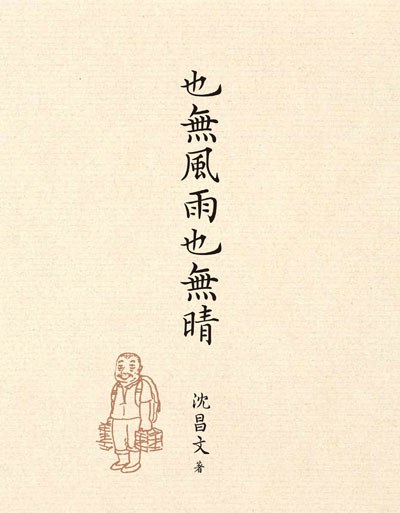 也無風雨也無晴
沈昌文 著